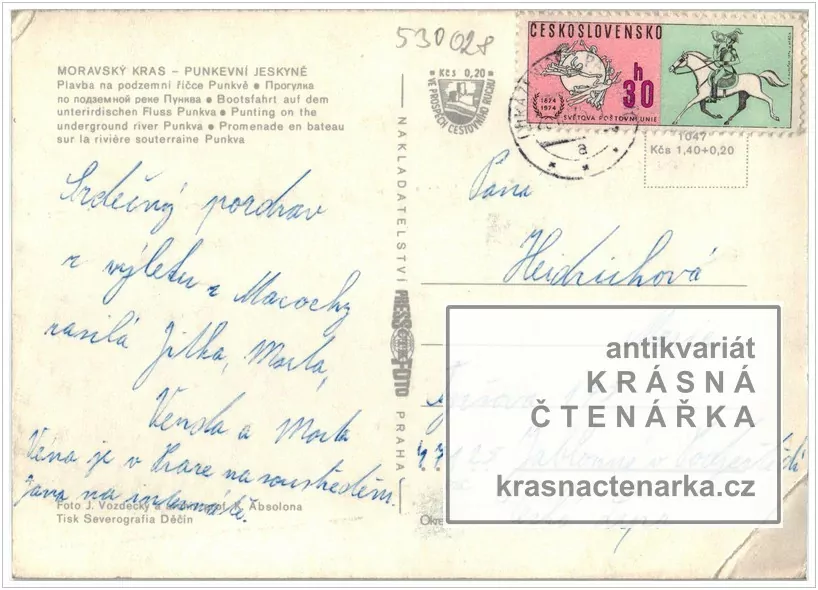 530028
MORAVSKÝ KRAS – PUNKEVNÍ JESKYNĚ
Plavba na podzemní říčce Punkvě • Прогулка
по подземной реке Пунква • Bootsfahrt auf dem
unterirdischen Fluss Punkva • Punting on the
underground river Punkva • Promenade en bateau
sur la rivière souterraine Punkva
Srdečný pozdrav
z výletu z Macochy
zasílá Jitka,
Venda a
Věna je v na soustředění
Jana na
Foto J. Vozdecký a Absolona
Tisk Severografia Děčín
Kčs 0,20
VE PROSPĚCH CESTOVNÍHO RUCHU
NAKLADATELSTVÍ
PRESSFOTO
PRAHA
ČESKOSLOVENSKO
h
30
1874
1974
SVĚTOVÁ POŠTOVNÍ UNIE
a
1047
Kčs 1,40+0,20
Paní
Heidrichová
Jablonné v Podještědí
Česká Lípa
antikvariát
KRÁSNÁ
ČTENÁŘKA
krasnactenarka.cz